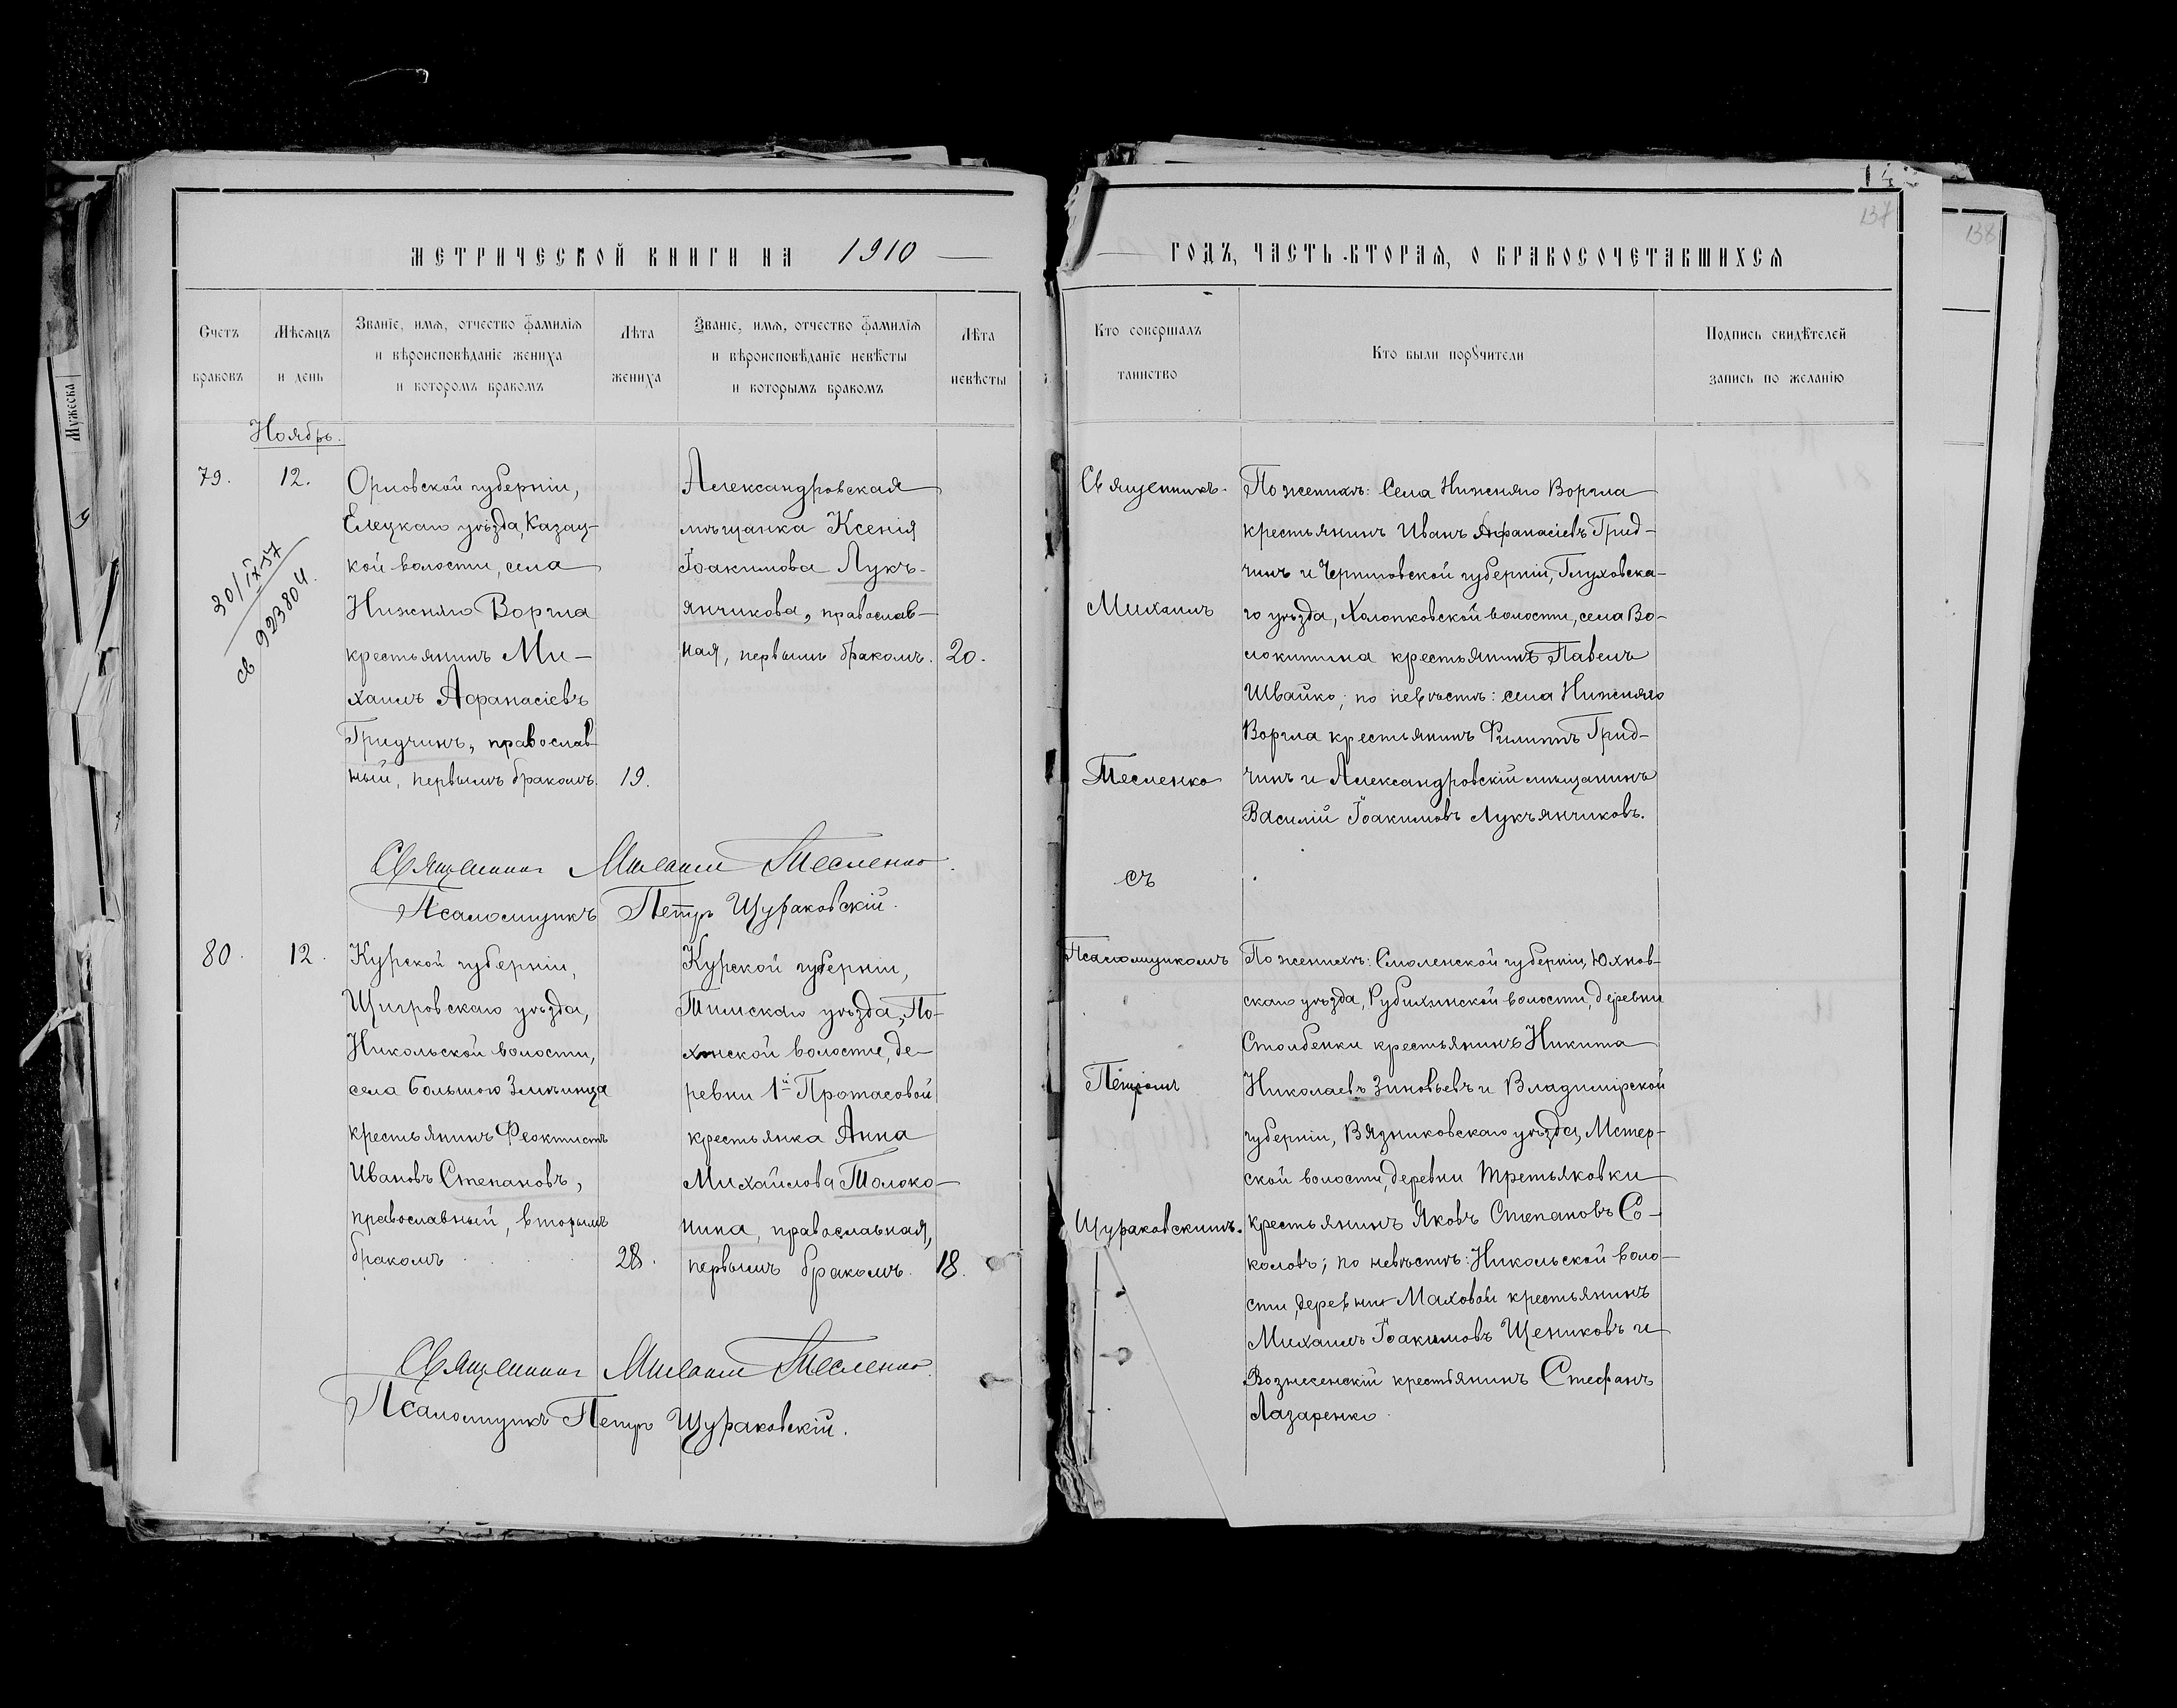 МЕТРИЧЕСКОЙ КНИГИ НА 1910
Счетъ
браковъ
Мѣсяцъ
и день
Званіе, имя, отчество фамилія
и вѣроисповѣданіе жениха
и которомъ бракомъ
Лѣта
жениха
Званіе, имя, отчество фамилія
и вѣроисповѣданіе невѣсты
и которымъ бракомъ
Лѣта
невѣсты
Ноябрь.
79.
12.
30/IX-57
св 923804.
Орловской губерніи,
Елецкаго уѣзда, Казац-
кой волости, села
Нижняго Воргла
крестьянинъ Ми-
хаилъ Афанасіевъ
Гридчинъ, православ-
ный, первымъ бракомъ.
19.
Александровская
мѣщанка Ксенія
Іоакимова Лукъ-
янчикова, православ-
ная, первымъ бракомъ.
20.
Священникъ Михаилъ Тесленко.
Псаломщикъ Петръ Щураковскій.
80.
12.
Курской губерніи,
Щигровскаго уѣзда,
Никольской волости,
села Большого Змѣинца
крестьянинъ Феоктистъ
Ивановъ Степановъ,
православный, вторымъ
бракомъ
28.
Курской губерніи,
Тимскаго уѣзда, По-
хонской волости, де-
ревни 1й Протасовой
крестьянка Анна
Михайлова Толоко-
нина, православная,
первымъ бракомъ.
18.
Священникъ Михаилъ Тесленко.
Псаломщикъ Петръ Щураковскій.
Мужеска
137
138
ГОДЪ, ЧАСТЬ ВТОРАЯ, О БРАКОСОЧЕТАВШИХСЯ
Кто совершалъ
таинство
Кто были поручители
Подпись свидѣтелей
запись по желанію
Священникъ
Михаилъ
Тесленко
съ
Псаломщикомъ
Петромъ
Щураковскимъ.
По женихѣ: Села Нижняго Воргла
крестьянинъ Иванъ Афанасіевъ Грид-
чинъ и Черниговской губерніи, Глуховска-
го уѣзда, Холопковской волости, села Во-
локитина крестьянинъ Павелъ
Швайко; по невѣстѣ: села Нижняго
Воргла крестьянинъ Филиппъ Грид-
чинъ и Александровскій мѣщанинъ
Василій Іоакимовъ Лукъянчиковъ.
По женихѣ: Смоленской губерніи, Юхнов-
скаго уѣзда, Рубихинской волости, деревни
Столбенки крестьянинъ Никита
Николаевъ Зиновьевъ и Владимірской
губерніи, Вязниковскаго уѣзда, Мстер-
ской волости, деревни Третьяковки
крестьянинъ Яковъ Степановъ Со-
коловъ; по невѣстѣ: Никольской воло-
сти, деревни Маховой крестьянинъ
Михаилъ Іоакимовъ Щениковъ и
Вознесенскій крестьянинъ Стефанъ
Лазаренко.